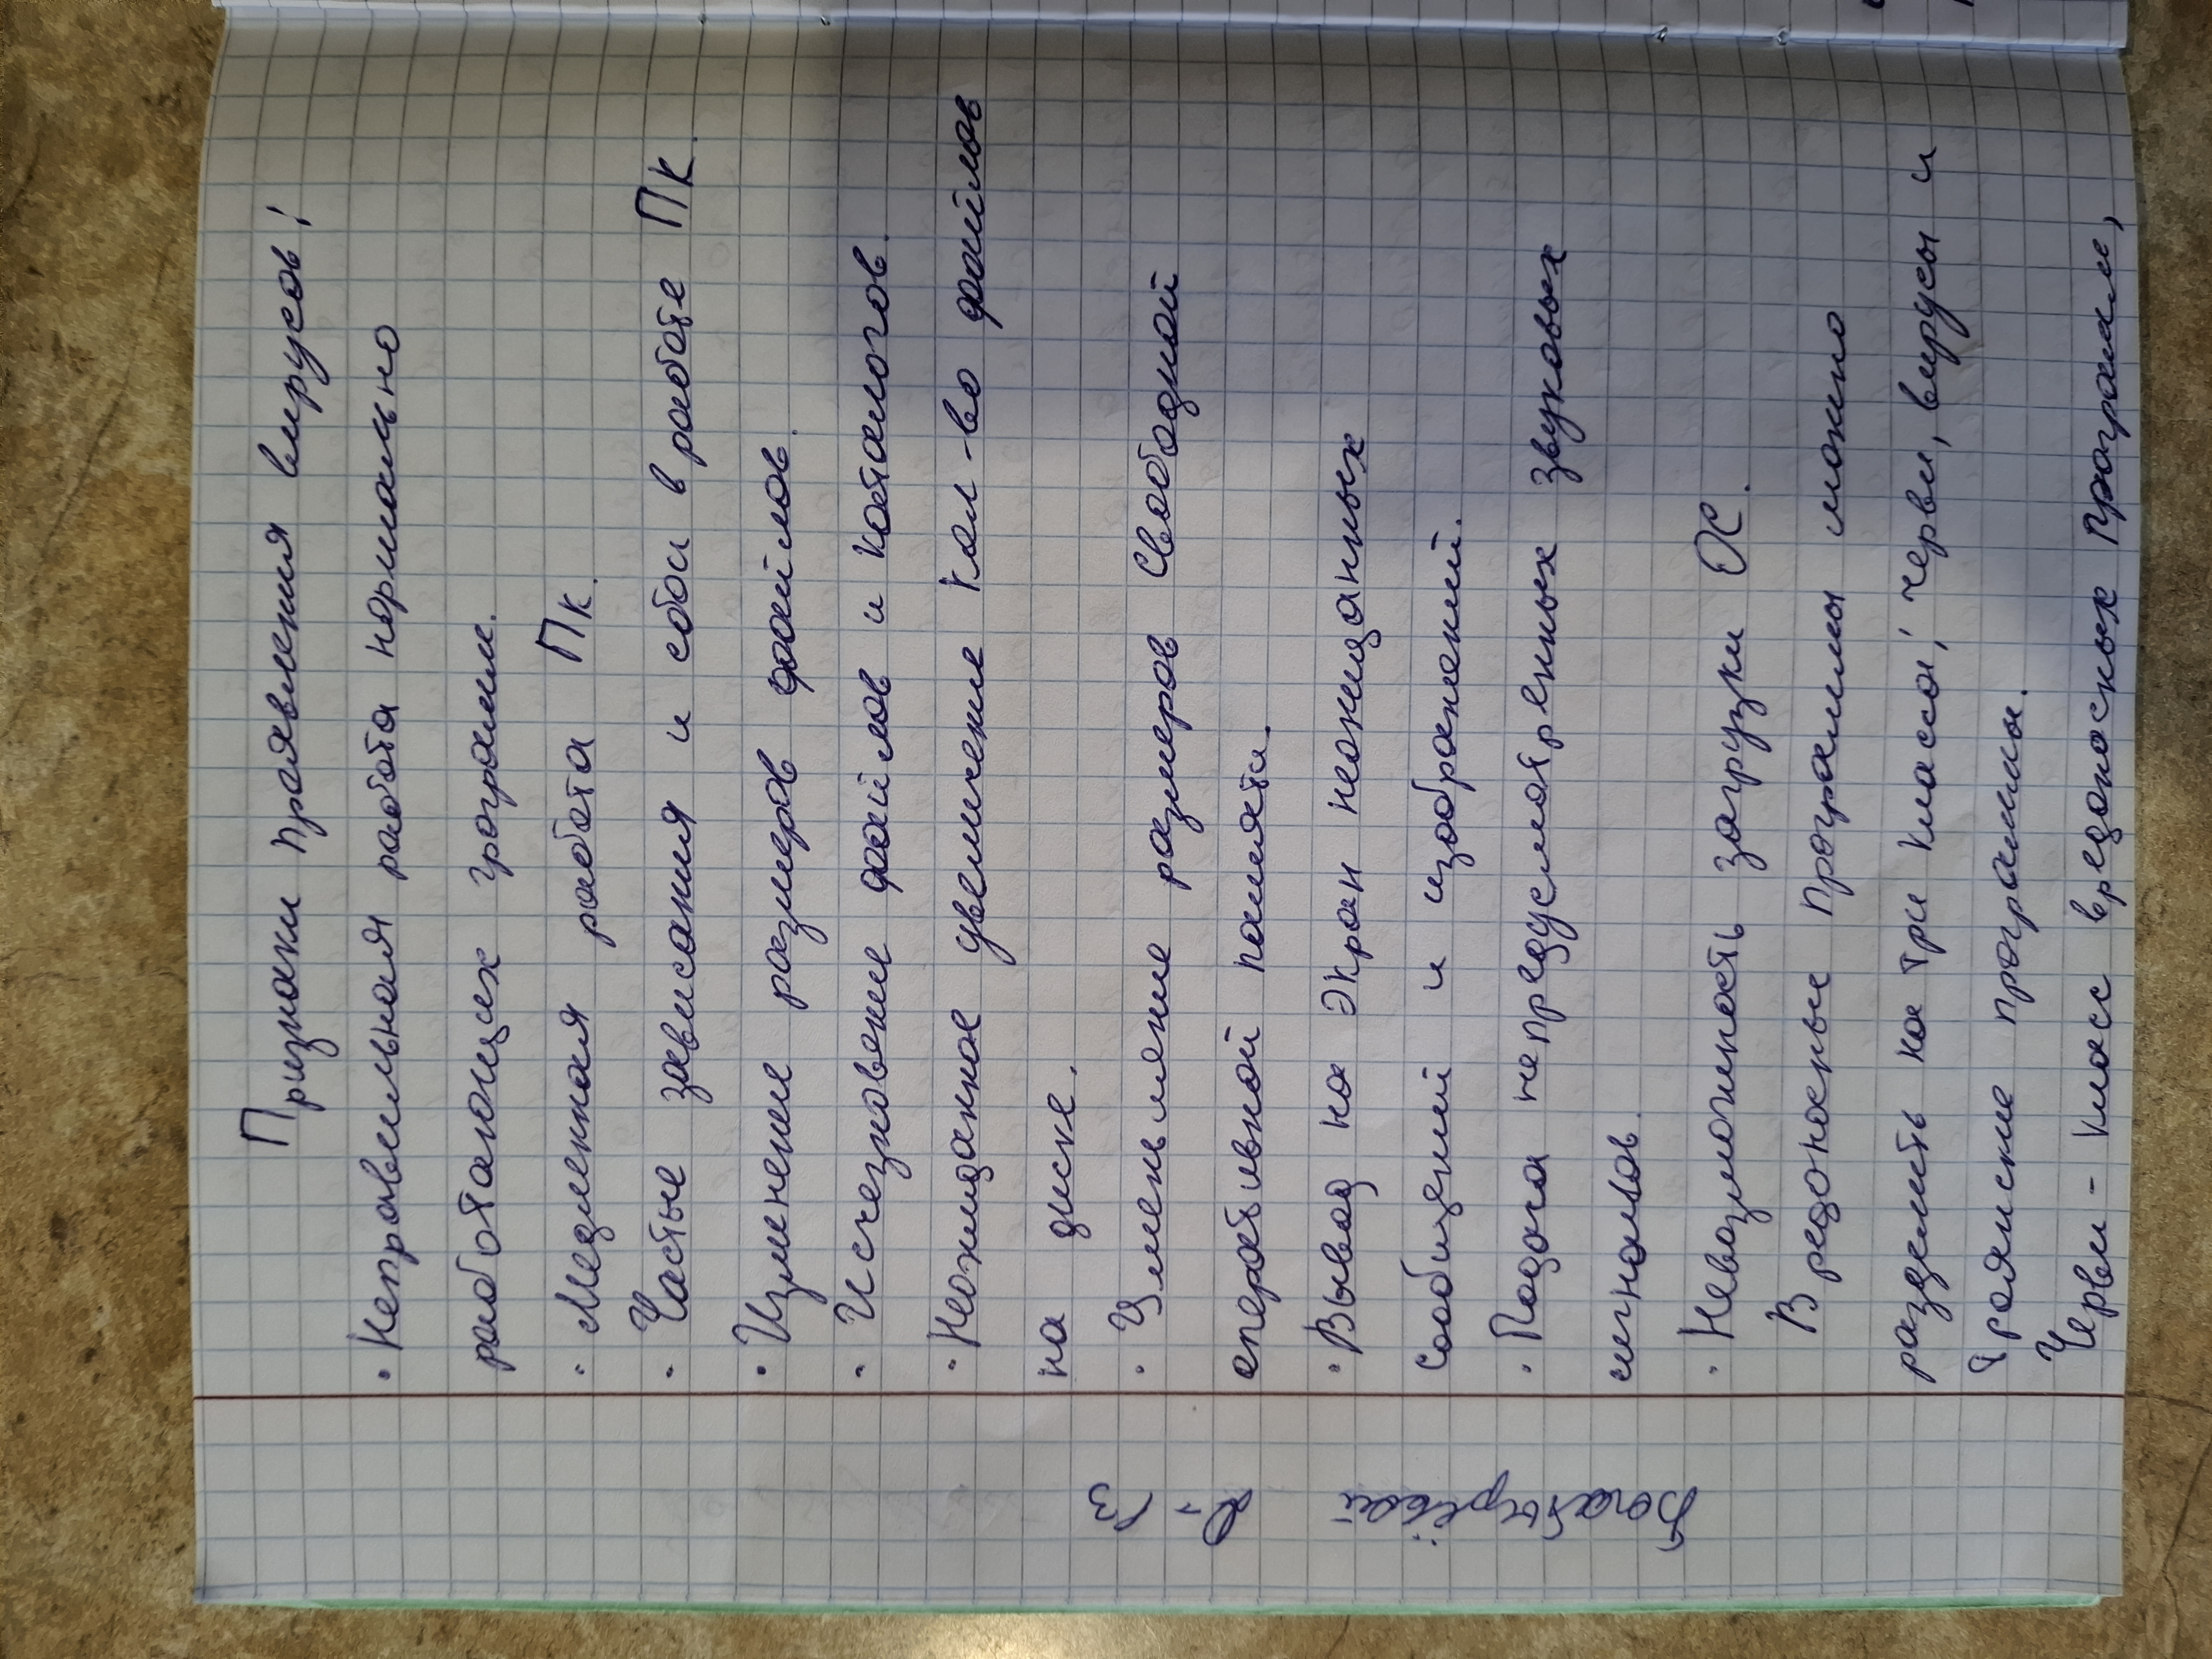 Признаки проявления вирусов:
· Неправильная работа нормально
работающих программ.
· Медленная работа ПК.
· Частые зависания и сбои в работе ПК.
· Изменение размеров файлов.
· Исчезновение файлов и каталогов.
· Неожиданное увеличение кол-во файлов
на диске.
· Уменьшение размеров свободной
оперативной памяти.
· Вывод на экран неожиданных
сообщений и изображений.
· Подача непредусмотренных звуковых
сигналов.
· Невозможность загрузки ОС.
Вредоносные программы можно
разделить на три класса: черви, вирусы и
троянские программы.
Черви - класс вредоносных программ,